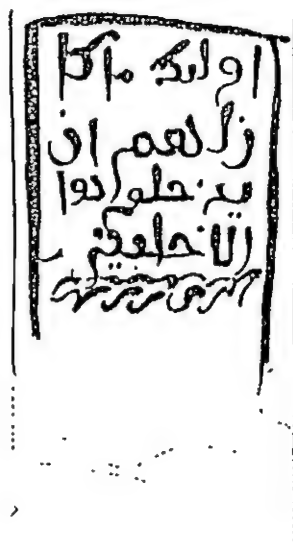 اولئك ما كا
ن لهم ان
يدخلوها
الا خايفين